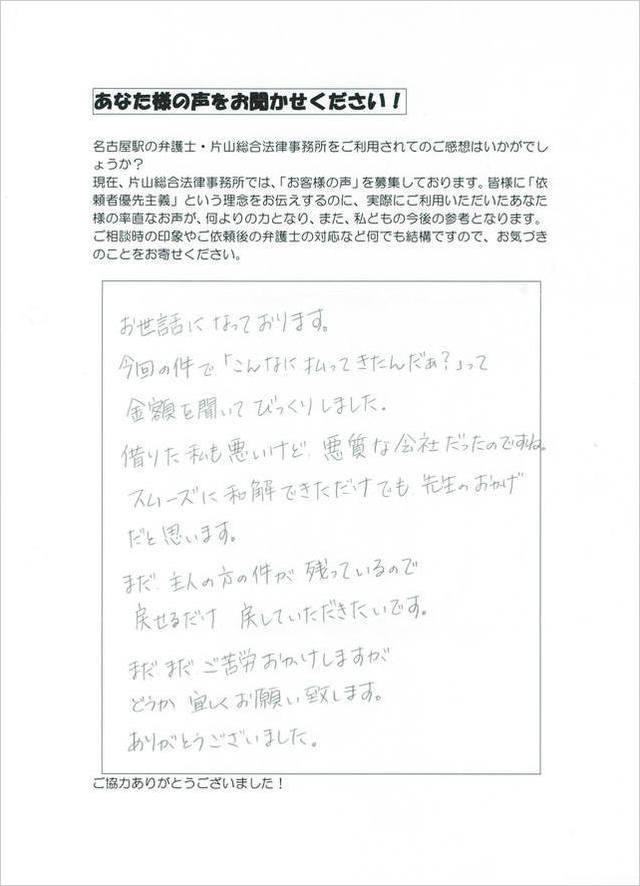 あなた様の声をお聞かせください！
名古屋駅の弁護士・片山総合法律事務所をご利用されてのご感想はいかがでし
ょうか？
現在、片山総合法律事務所では、「お客様の声」を募集しております。皆様に「依
頼者優先主義」という理念をお伝えするのに、実際にご利用いただいたあなた
様の率直なお声が、何よりの力となり、また、私どもの今後の参考となります。
ご相談時の印象やご依頼後の弁護士の対応など何でも結構ですので、お気づき
のことをお寄せください。
お世話になっております。
今回の件で「こんなに払ってきたんだぁ？」って
金額を聞いてびっくりしました。
借りた私も悪いけど、悪質な会社だったのですね。
スムーズに和解できただけでも先生のおかげ
だと思います。
まだ、主人の方の件が残っているので
戻せるだけ 戻していただきたいです。
まだまだご苦労おかけしますが
どうか宜しくお願い致します。
ありがとうございました。
ご協力ありがとうございました！